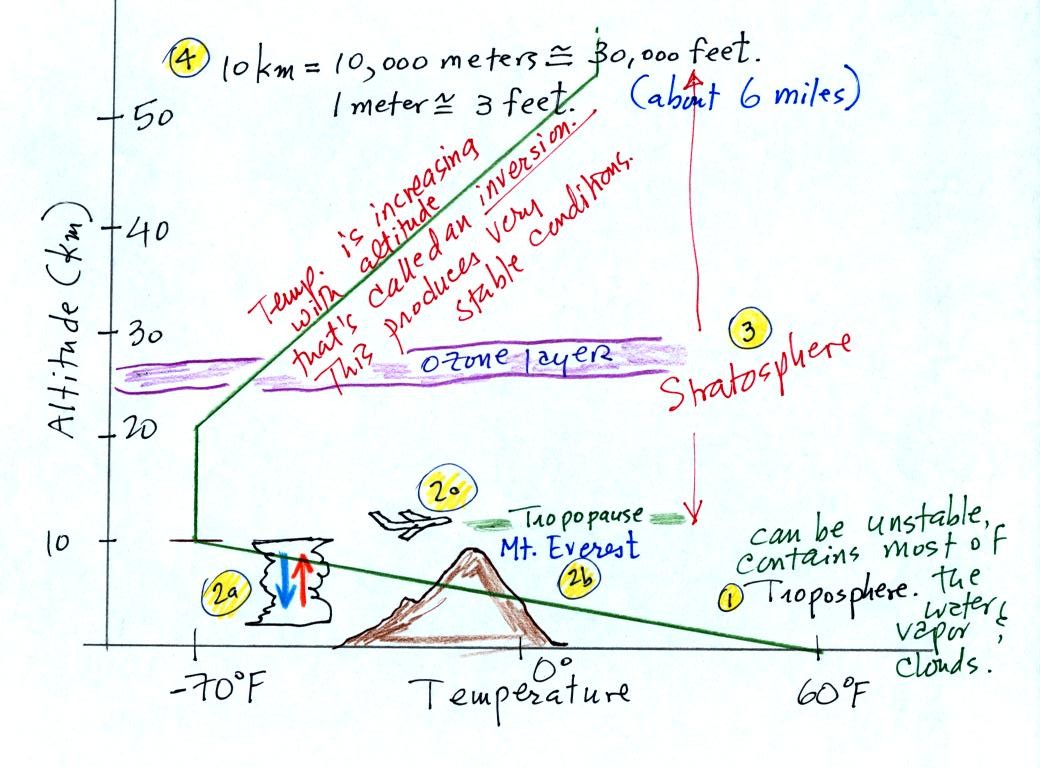 4 10 km = 10,000 meters ≅ 30,000 feet.
1 meter ≅ 3 feet. (about 6 miles)
50
40
30
20
10
Altitude (km)
Temp. is increasing
with altitude
that's called an inversion.
This produces very
stable conditions.
ozone layer
3
Stratosphere
2c
Tropopause
Mt. Everest
2b
2a
can be unstable,
contains most of
1 Troposphere. the
water
vapor &
clouds.
-70°F
0°
60°F
Temperature